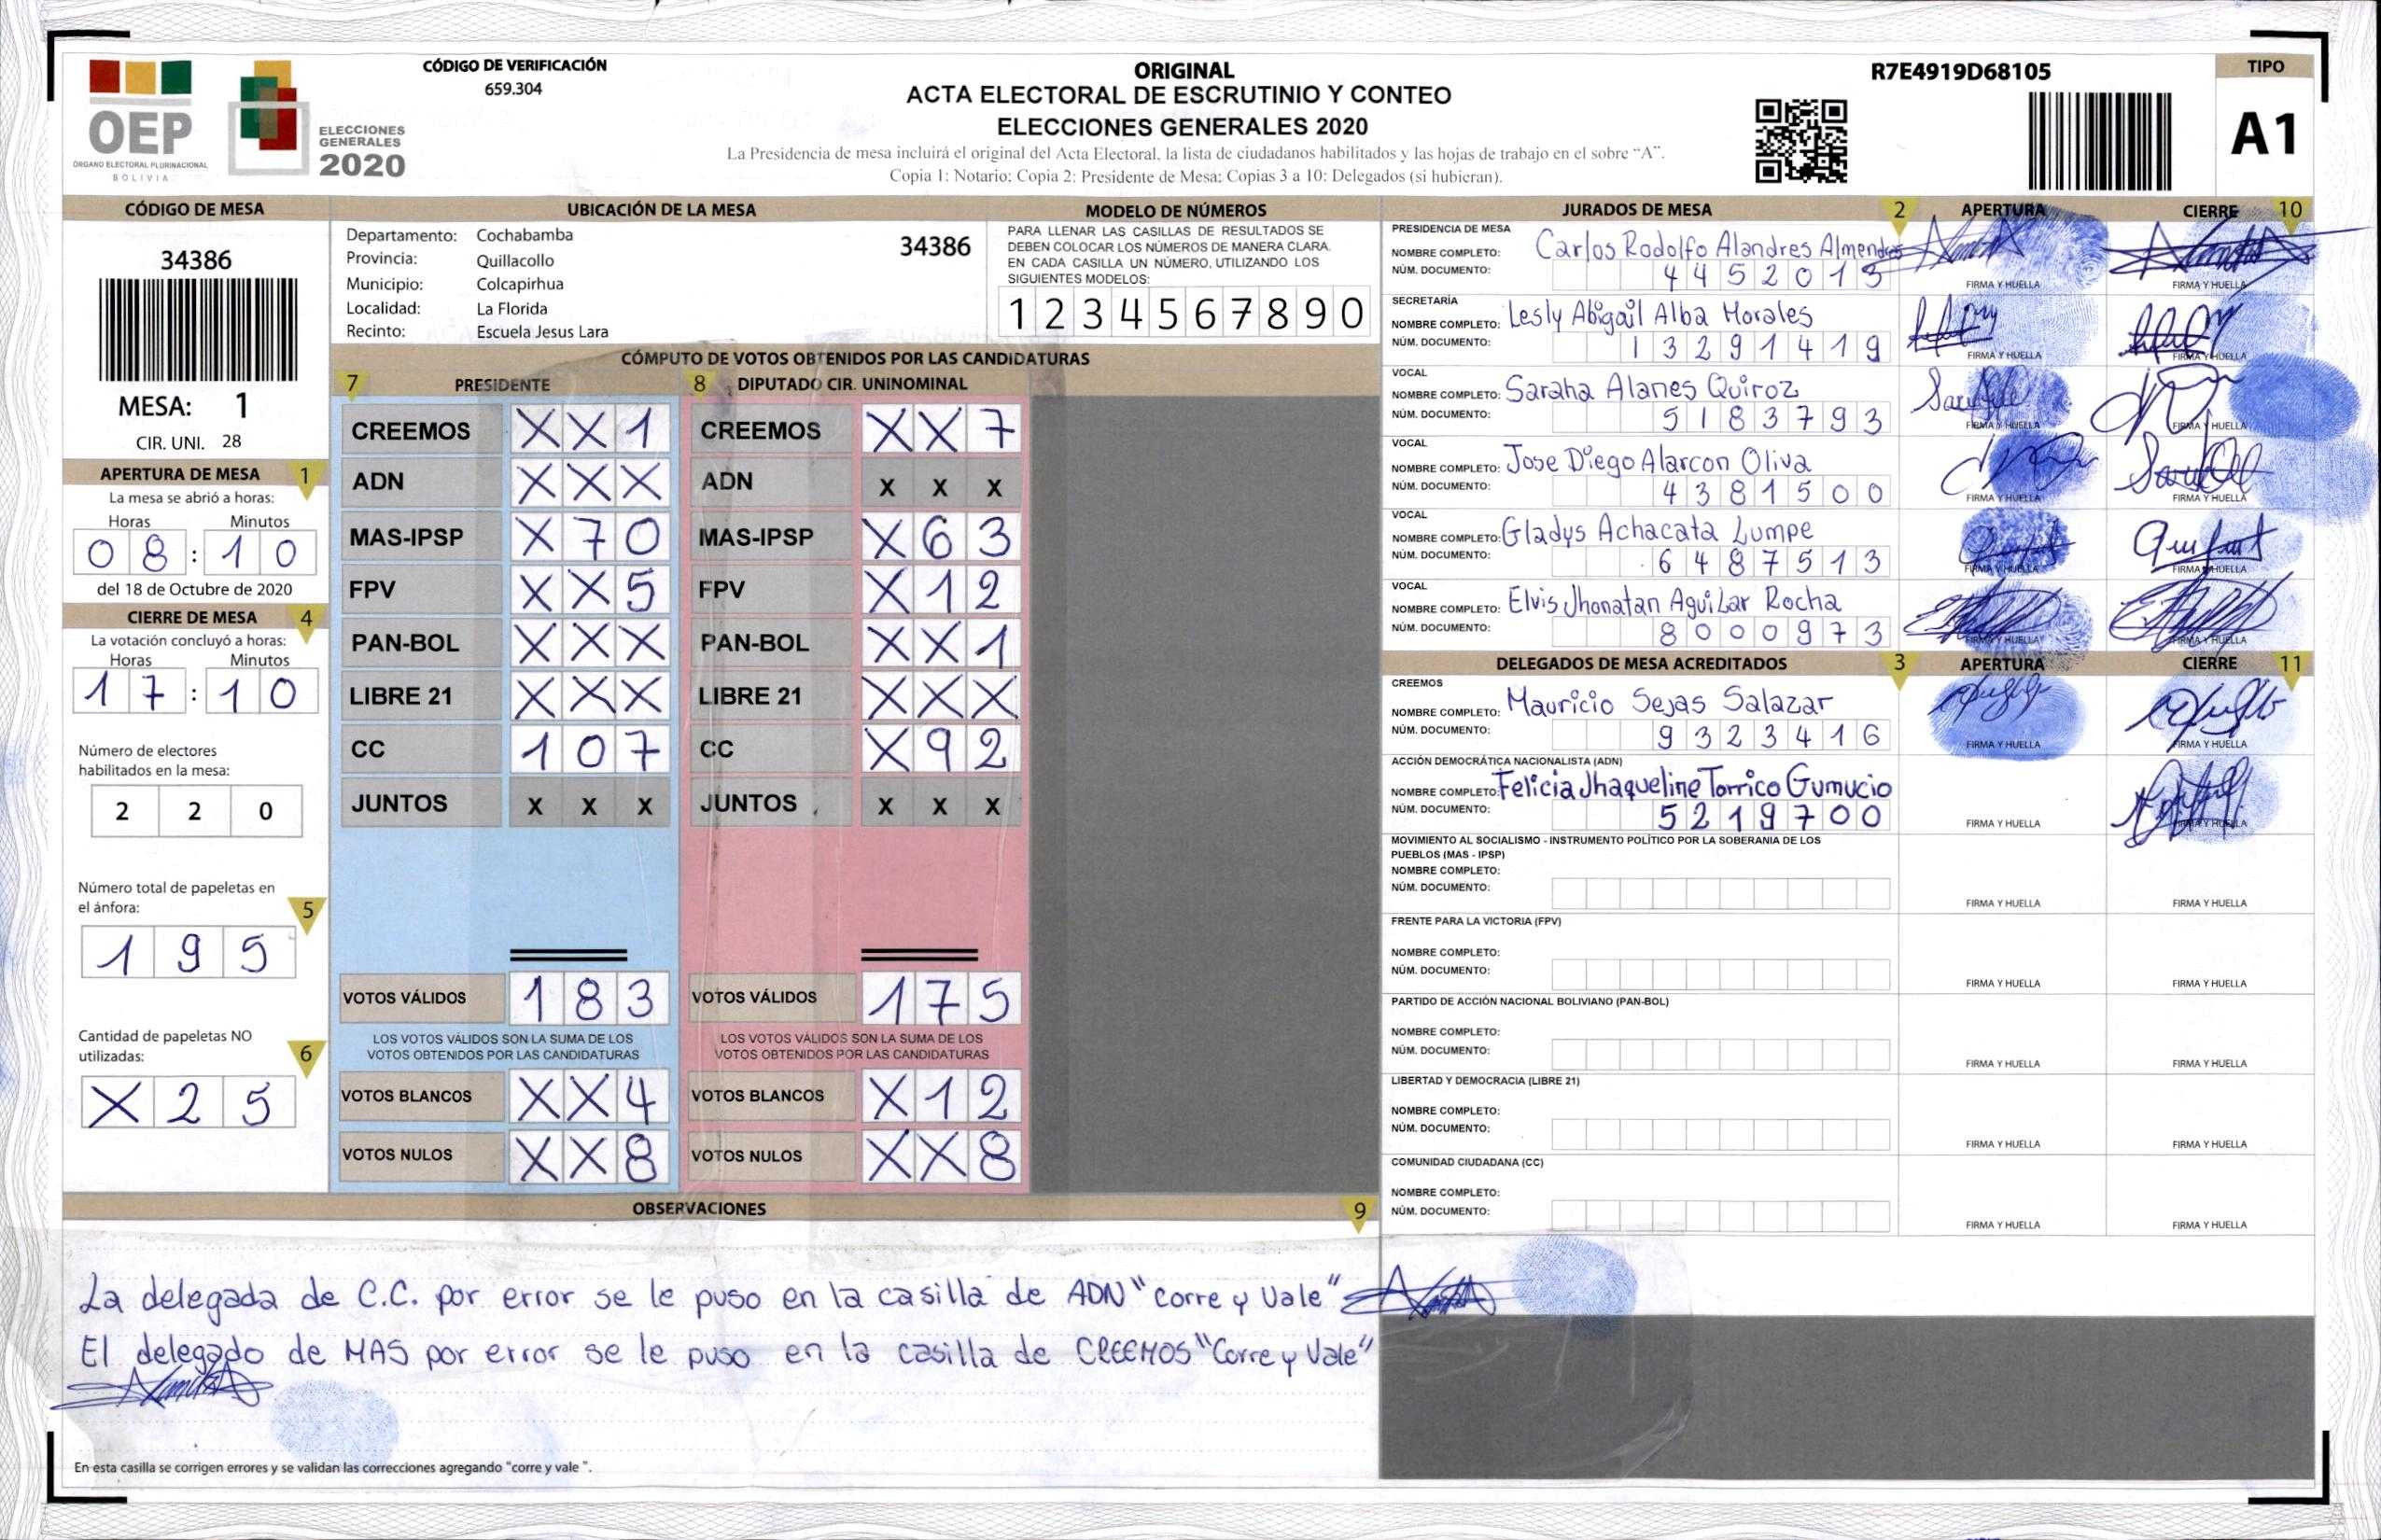 OEP
ÓRGANO ELECTORAL PLURINACIONAL
BOLIVIA
ELECCIONES
GENERALES
2020
CÓDIGO DE VERIFICACIÓN
659.304
ORIGINAL
ACTA ELECTORAL DE ESCRUTINIO Y CONTEO
ELECCIONES GENERALES 2020
La Presidencia de mesa incluirá el original del Acta Electoral, la lista de ciudadanos habilitados y las hojas de trabajo en el sobre “A”.
Copia 1: Notario; Copia 2: Presidente de Mesa; Copias 3 a 10: Delegados (si hubieran).
R7E4919D68105
TIPO
A1
CÓDIGO DE MESA
34386
MESA: 1
CIR. UNI. 28
APERTURA DE MESA 1
La mesa se abrió a horas:
Horas Minutos
08:10
del 18 de Octubre de 2020
CIERRE DE MESA 4
La votación concluyó a horas:
Horas Minutos
17:10
Número de electores
habilitados en la mesa:
2 2 0
Número total de papeletas en
el ánfora: 5
1 9 5
Cantidad de papeletas NO
utilizadas: 6
X 2 5
UBICACIÓN DE LA MESA
Departamento: Cochabamba 34386
Provincia: Quillacollo
Municipio: Colcapirhua
Localidad: La Florida
Recinto: Escuela Jesus Lara
MODELO DE NÚMEROS
PARA LLENAR LAS CASILLAS DE RESULTADOS SE
DEBEN COLOCAR LOS NÚMEROS DE MANERA CLARA.
EN CADA CASILLA UN NÚMERO, UTILIZANDO LOS
SIGUIENTES MODELOS:
1 2 3 4 5 6 7 8 9 0
CÓMPUTO DE VOTOS OBTENIDOS POR LAS CANDIDATURAS
7 PRESIDENTE 8 DIPUTADO CIR. UNINOMINAL
CREEMOS X X 1 CREEMOS X X 7
ADN X X X ADN X X X
MAS-IPSP X 7 0 MAS-IPSP X 6 3
FPV X X 5 FPV X 1 2
PAN-BOL X X X PAN-BOL X X 1
LIBRE 21 X X X LIBRE 21 X X X
CC 1 0 7 CC X 9 2
JUNTOS X X X JUNTOS X X X
VOTOS VÁLIDOS 1 8 3 VOTOS VÁLIDOS 1 7 5
LOS VOTOS VÁLIDOS SON LA SUMA DE LOS LOS VOTOS VÁLIDOS SON LA SUMA DE LOS
VOTOS OBTENIDOS POR LAS CANDIDATURAS VOTOS OBTENIDOS POR LAS CANDIDATURAS
VOTOS BLANCOS X X 4 VOTOS BLANCOS X 1 2
VOTOS NULOS X X 8 VOTOS NULOS X X 8
JURADOS DE MESA 2 APERTURA CIERRE 10
PRESIDENCIA DE MESA
NOMBRE COMPLETO: Carlos Rodolfo Alandres Almendras
NÚM. DOCUMENTO: 4452013 FIRMA Y HUELLA FIRMA Y HUELLA
SECRETARÍA
NOMBRE COMPLETO: Lesly Abigail Alba Morales
NÚM. DOCUMENTO: 13291419 FIRMA Y HUELLA FIRMA Y HUELLA
VOCAL
NOMBRE COMPLETO: Saraha Alanes Quiroz
NÚM. DOCUMENTO: 5183793 FIRMA Y HUELLA FIRMA Y HUELLA
VOCAL
NOMBRE COMPLETO: Jose Diego Alarcon Oliva
NÚM. DOCUMENTO: 4381500 FIRMA Y HUELLA FIRMA Y HUELLA
VOCAL
NOMBRE COMPLETO: Gladys Achacata Lumpe
NÚM. DOCUMENTO: 6487513 FIRMA Y HUELLA FIRMA Y HUELLA
VOCAL
NOMBRE COMPLETO: Elvis Jhonatan Aguilar Rocha
NÚM. DOCUMENTO: 8000973 FIRMA Y HUELLA FIRMA Y HUELLA
DELEGADOS DE MESA ACREDITADOS 3 APERTURA CIERRE 11
CREEMOS
NOMBRE COMPLETO: Mauricio Sejas Salazar
NÚM. DOCUMENTO: 9323416 FIRMA Y HUELLA FIRMA Y HUELLA
ACCIÓN DEMOCRÁTICA NACIONALISTA (ADN)
NOMBRE COMPLETO: Felicia Jhaqueline Torrico Gumucio
NÚM. DOCUMENTO: 5219700 FIRMA Y HUELLA FIRMA Y HUELLA
MOVIMIENTO AL SOCIALISMO - INSTRUMENTO POLÍTICO POR LA SOBERANIA DE LOS
PUEBLOS (MAS - IPSP)
NOMBRE COMPLETO:
NÚM. DOCUMENTO: FIRMA Y HUELLA FIRMA Y HUELLA
FRENTE PARA LA VICTORIA (FPV)
NOMBRE COMPLETO:
NÚM. DOCUMENTO: FIRMA Y HUELLA FIRMA Y HUELLA
PARTIDO DE ACCIÓN NACIONAL BOLIVIANO (PAN-BOL)
NOMBRE COMPLETO:
NÚM. DOCUMENTO: FIRMA Y HUELLA FIRMA Y HUELLA
LIBERTAD Y DEMOCRACIA (LIBRE 21)
NOMBRE COMPLETO:
NÚM. DOCUMENTO: FIRMA Y HUELLA FIRMA Y HUELLA
COMUNIDAD CIUDADANA (CC)
NOMBRE COMPLETO:
NÚM. DOCUMENTO: FIRMA Y HUELLA FIRMA Y HUELLA
OBSERVACIONES 9
La delegada de C.C. por error se le puso en la casilla de ADN "Corre y Vale"
El delegado de MAS por error se le puso en la casilla de CREEMOS "Corre y Vale"
En esta casilla se corrigen errores y se validan las correcciones agregando "corre y vale ".